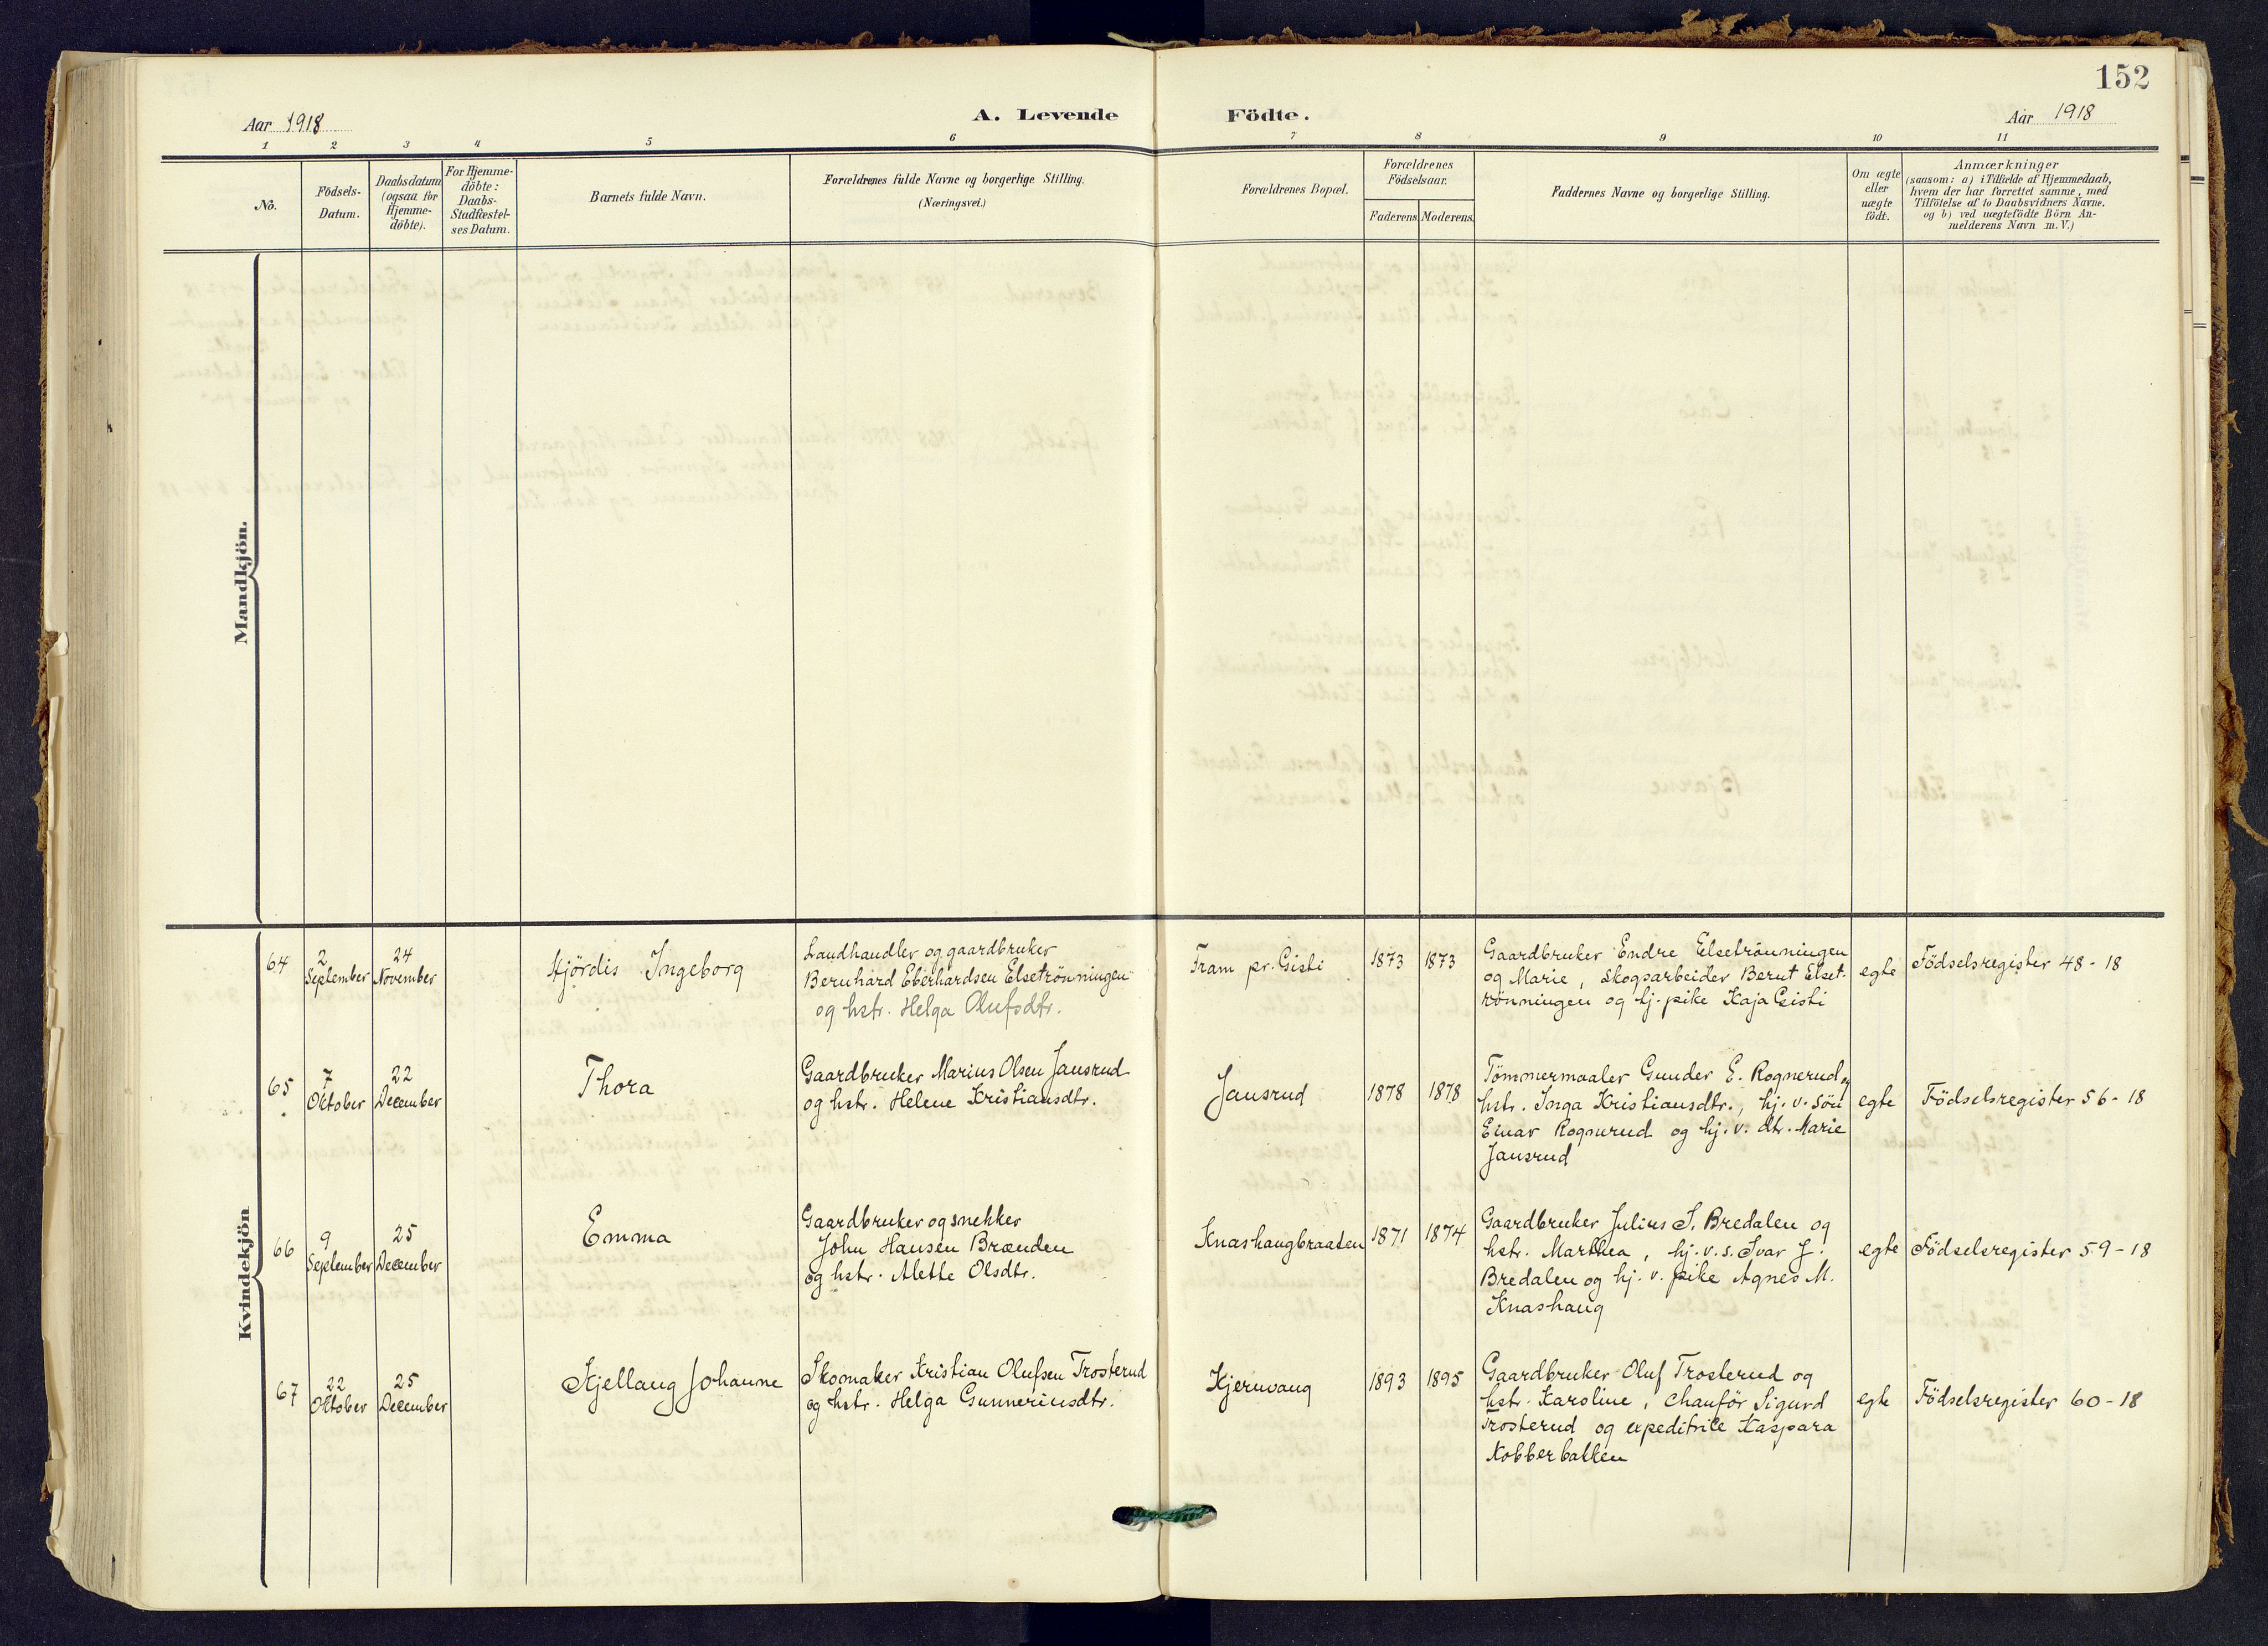 152
Aar 1918
A. Levende
Födte.
Aar 1918
1 2 3 4 5 6 7 8 9 10 11
No.
Födsels-
Datum.
Daabsdatum
(ogsaa for
Hjemme-
döbte).
For Hjemme-
döbte:
Daabs-
Stadfæstel-
ses Datum.
Barnets fulde Navn.
Forældrenes fulde Navne og borgerlige Stilling.
(Næringsvei.)
Forældrenes Bopæl.
Forældrenes
Födselsaar.
Faderens. Moderens.
Faddernes Navne og borgerlige Stilling.
Om ægte
eller
uægte
födt.
Anmærkninger
(saasom: a) i Tilfælde af Hjemmedaab,
hvem der har forrettet samme, med
Tilföielse af to Daabsvidners Navne.
og b) ved uægtefödte Börn An-
melderens Navn m. V.)
Mandkjön.
Kvindekjön
64
2
September
24
November
Hjördis Ingeborg
Landhandler og gaardbruker
Bernhard Eberhardsen Elsetrönningen
og hstr. Helga Olufsdtr.
Fram pr. Gisti
1873
1873
Gaardbruker Endre Elsetrönningen
og Marie, skogsarbeider Bernt Elset-
rönningen og hj. pike Kaja Gisti
egte
Födselsregister 48 - 18
65
7
Oktober
22
December
Thora
Gaardbruker Marius Olsen Jansrud
og hstr. Helene Kristiansdtr.
Jansrud
1878
1878
Tömmermaaler Gunder E. Rognerud og
hstr. Inga Kristiansdtr., hj. v. sön
Einar Rognerud og hj. v. dtr. Marie
Jansrud
egte
Födselsregister 56 - 18
66
9
September
25
December
Emma
Gaardbruker og snekker
John Hansen Brænden
og hstr. Alette Olsdtr.
Knashaugbraaten
1871
1874
Gaardbruker Julius I. Bredalen og
hstr. Marthea, hj. v. s. Ivar J.
Bredalen og hj. v. pike Agnes M.
Knashaug
egte
Födselsregister 59 - 18
67
22
Oktober
25
December
Kjellaug Johanne
Skomaker Kristian Olufsen Trosterud
og hstr. Helga Gunneriusdtr.
Kjernvang
1893
1895
Gaardbruker Oluf Trosterud og
hstr. Karoline, chauför Sigurd
Trosterud og expeditrice Kaspara
Kobberbakken
egte
Födselsregister 60 - 18